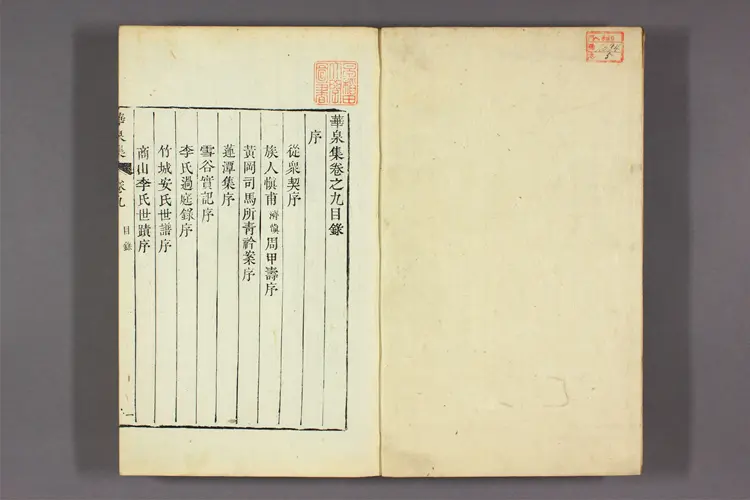 華泉集卷之九目錄
序
從衆契序
族人慎甫濟慎周甲壽序
黃岡司馬所青衿案序
蓮潭集序
雪谷實記序
李氏過庭錄序
竹城安氏世譜序
商山李氏世蹟序
華泉集 卷九 目錄 一